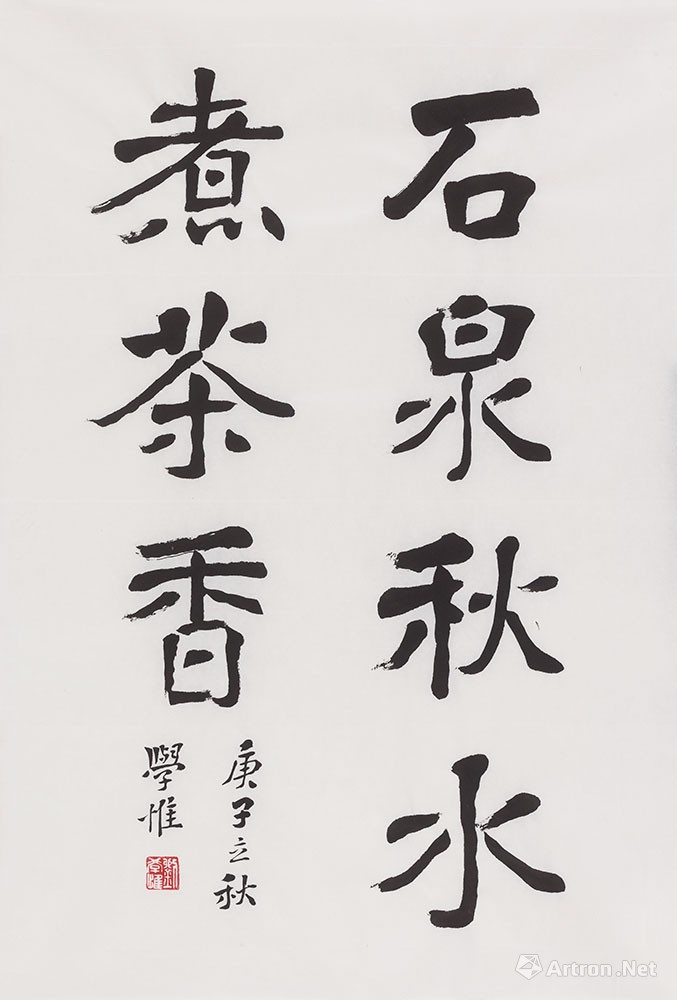 石泉秋水
煮茶香
庚子立秋
學惟
Artron.Net